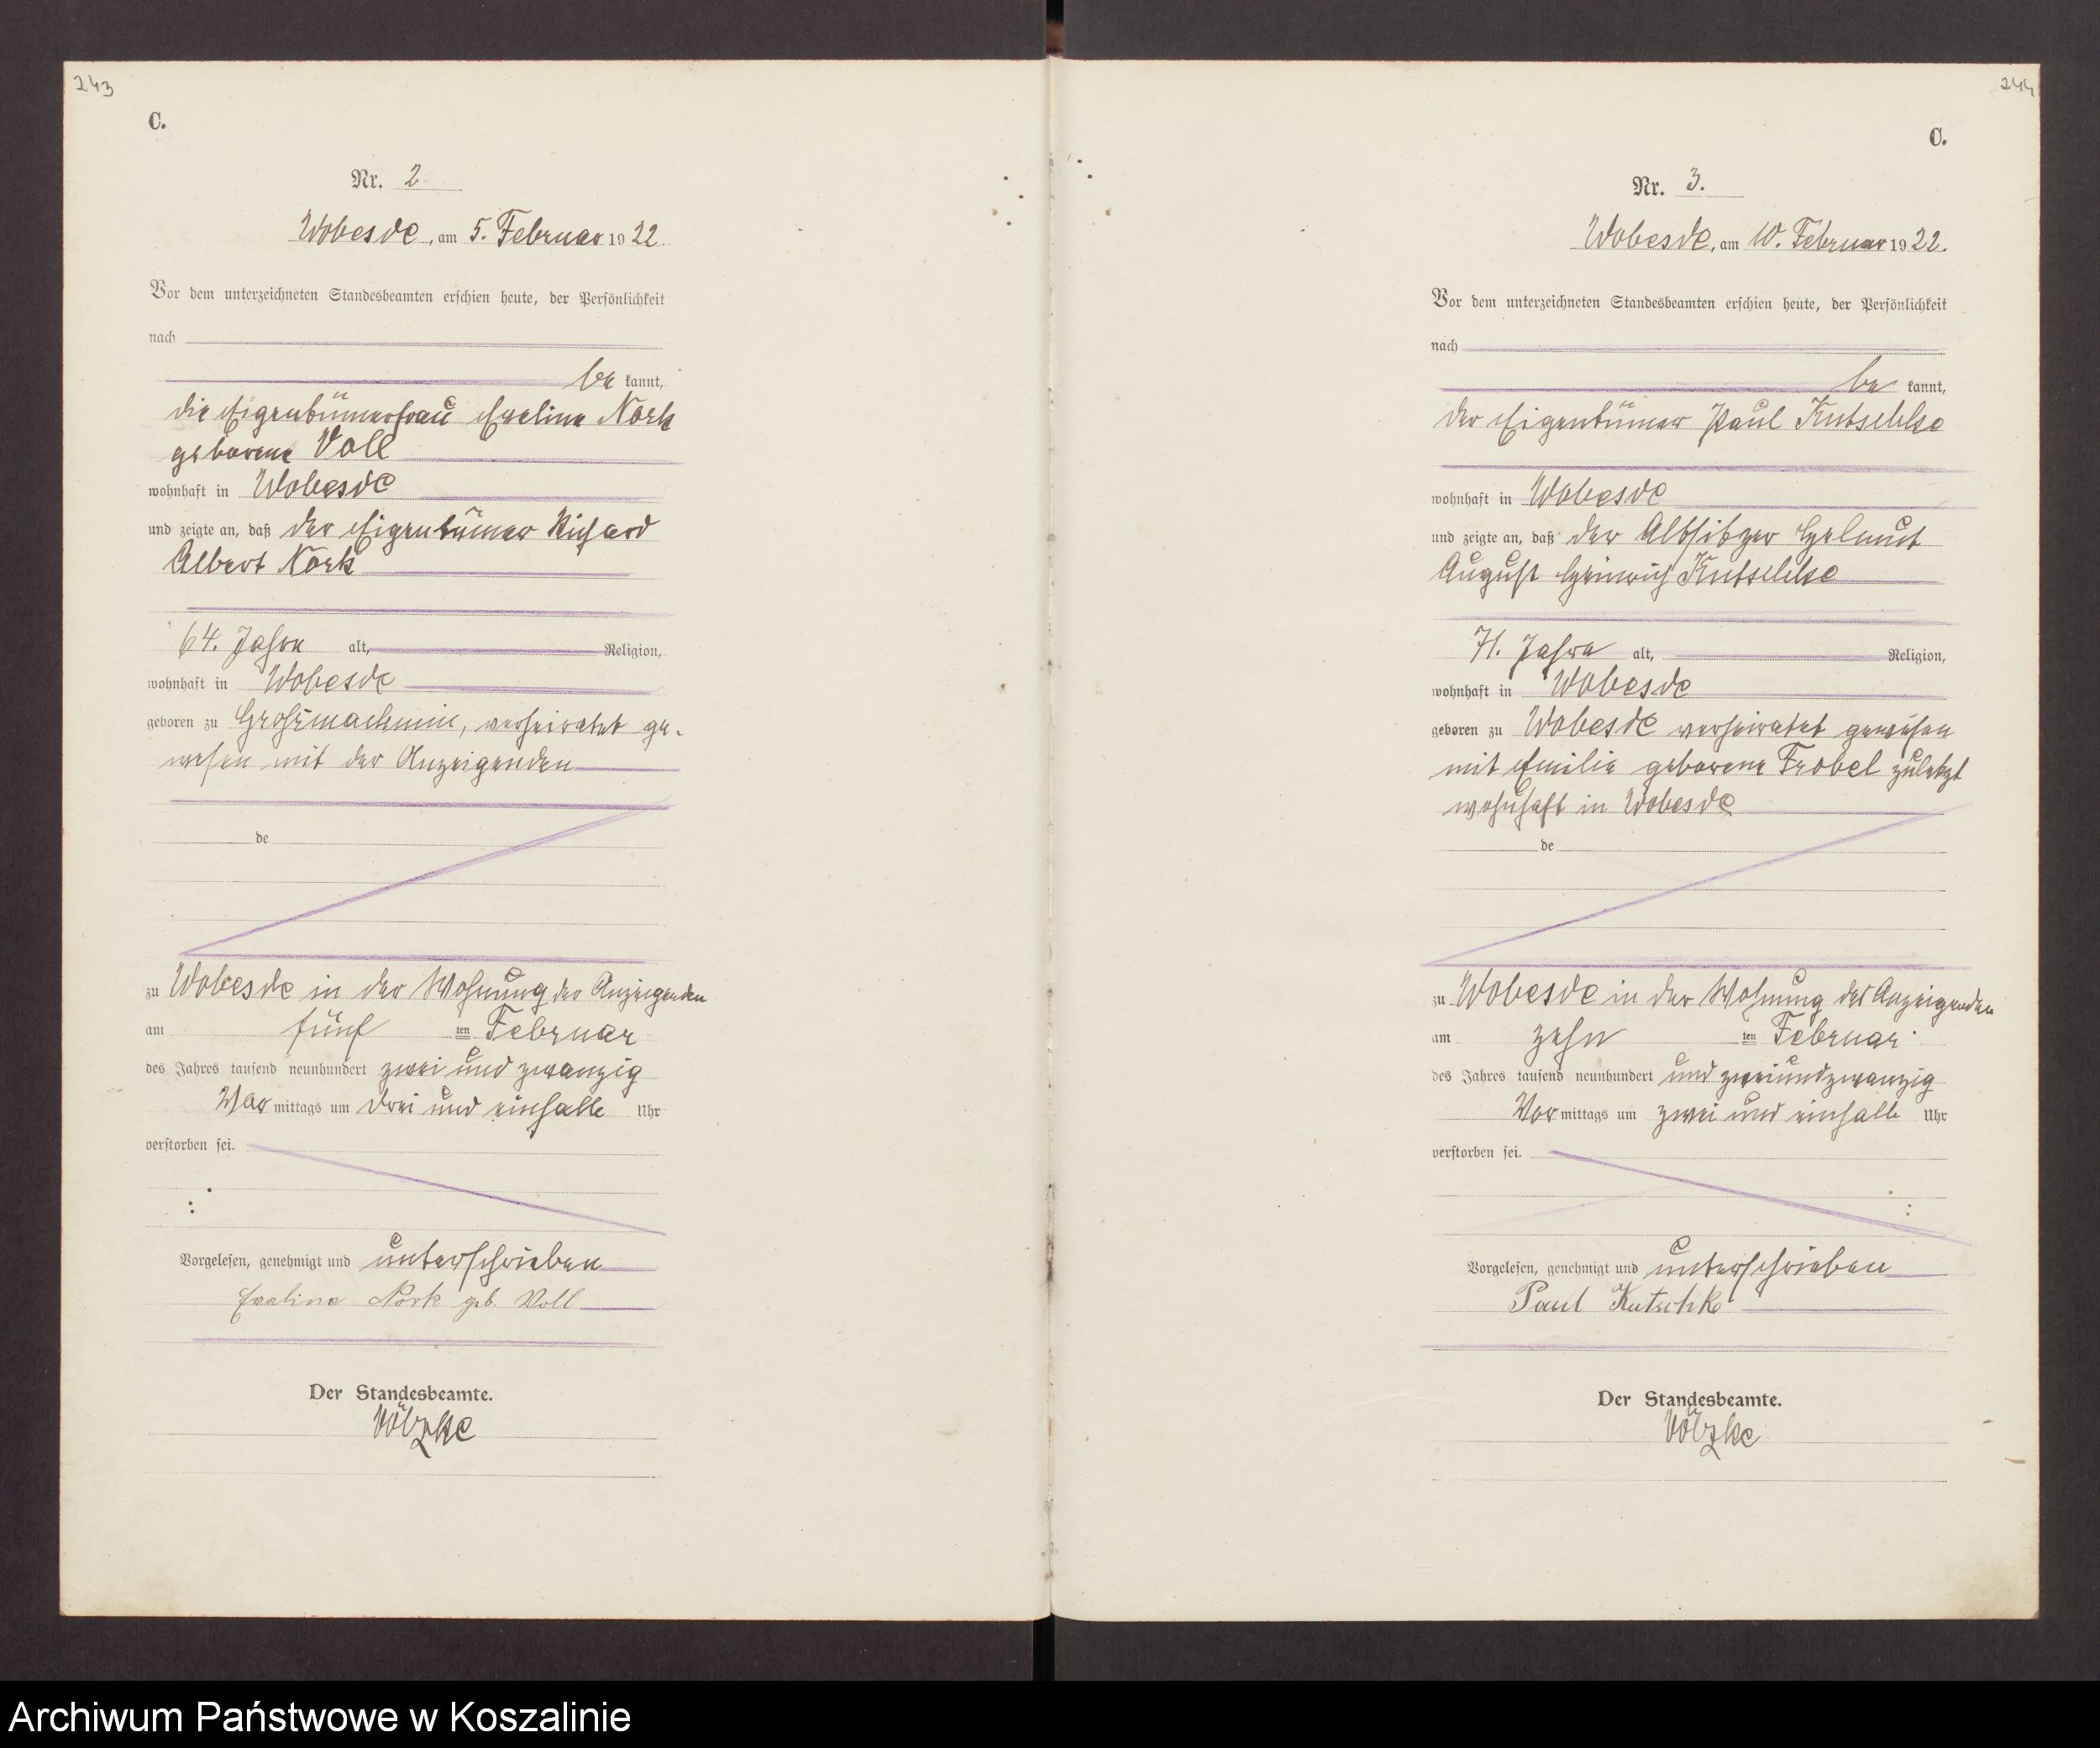 243
C.
Nr. 2
Wobesde, am 5. Februar 1922.
Vor dem unterzeichneten Standesbeamten erschien heute, der Persönlichkeit
nach
be kannt,
die Eigentümerfrau Eveline Nork
geborene Voll
wohnhaft in Wobesde
und zeigte an, daß der Eigentümer Richard
Albert Nork
64. Jahre alt, Religion,
wohnhaft in Wobesde
geboren zu Großmachmin, verheiratet ge-
wesen mit der Anzeigenden
de
zu Wobesde in der Wohnung der Anzeigenden
am fünf ten Februar
des Jahres tausend neunhundert zwei und zwanzig
Vor mittags um drei und einhalb Uhr
verstorben sei.
Vorgelesen, genehmigt und unterschrieben
Eveline Nork geb. Voll
Der Standesbeamte.
Völzke
244
C.
Nr. 3.
Wobesde, am 10. Februar 1922.
Vor dem unterzeichneten Standesbeamten erschien heute, der Persönlichkeit
nach
be kannt,
der Eigentümer Paul Kutschke
wohnhaft in Wobesde
und zeigte an, daß der Altsitzer Helmut
August Heinrich Kutschke
71. Jahre alt, Religion,
wohnhaft in Wobesde
geboren zu Wobesde verheiratet gewesen
mit Emilie geborene Frobel zuletzt
wohnhaft in Wobesde
de
zu Wobesde in der Wohnung des Anzeigenden
am zehn ten Februar
des Jahres tausend neunhundert und zweiundzwanzig
Vor mittags um zwei und einhalb Uhr
verstorben sei.
Vorgelesen, genehmigt und unterschrieben
Paul Kutschke
Der Standesbeamte.
Völzke
Archiwum Państwowe w Koszalinie